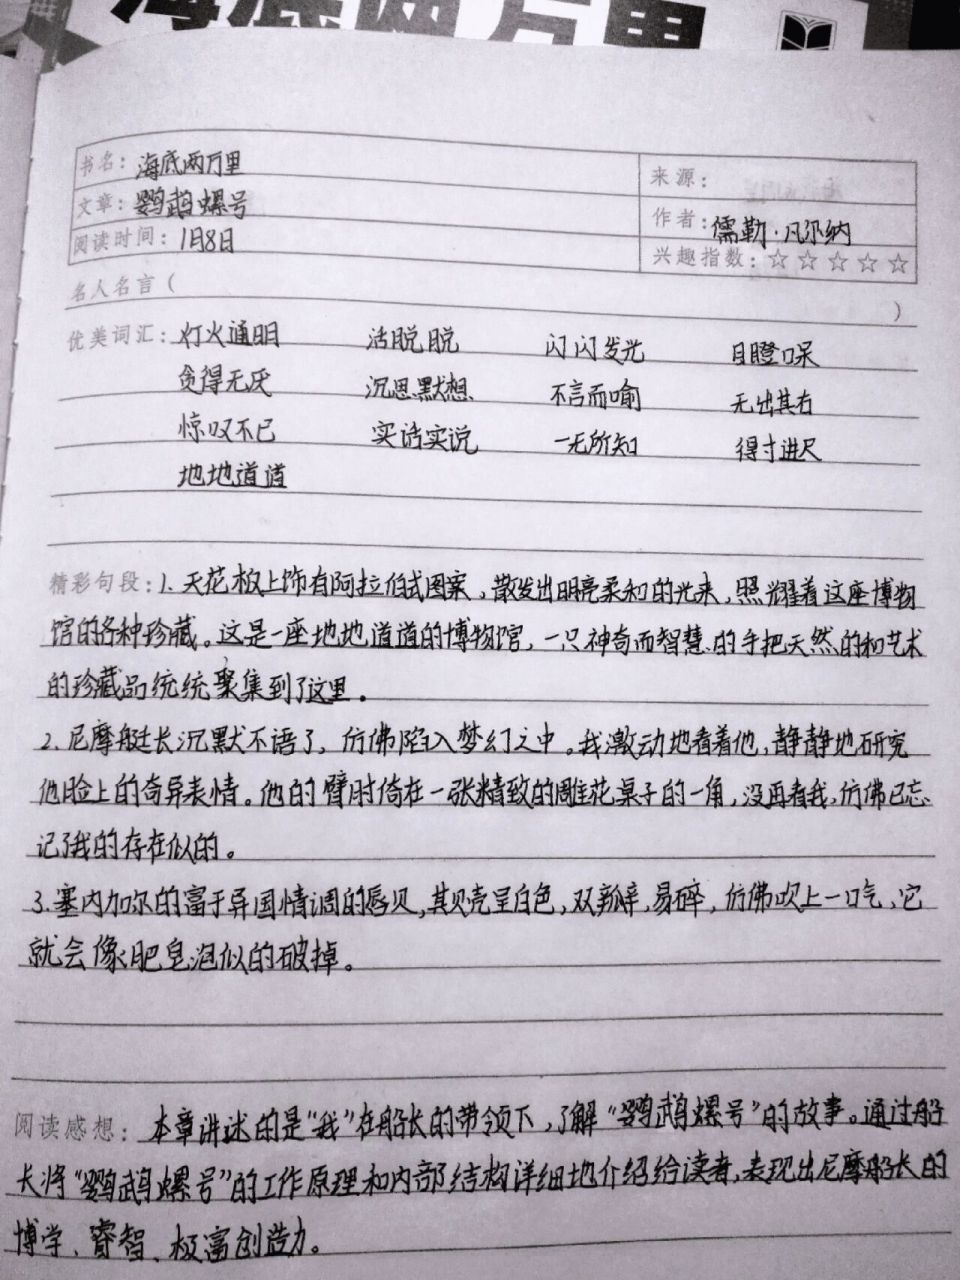 海底两万里
书名：海底两万里
来源：
文章：鹦鹉螺号
作者：儒勒·凡尔纳
阅读时间：1月8日
兴趣指数：☆☆☆☆☆
名人名言（ ）
优美词汇：灯火通明 活脱脱 闪闪发光 目瞪口呆
贪得无厌 沉思默想 不言而喻 无出其右
惊叹不已 实话实说 一无所知 得寸进尺
地地道道
精彩句段：1. 天花板上饰有阿拉伯式图案，散发出明亮柔和的光来，照耀着这座博物
馆的各种珍藏。这是一座地地道道的博物馆，一只神奇而智慧的手把天然的和艺术
的珍藏品统统聚集到了这里。
2. 尼摩艇长沉默不语了，仿佛陷入梦幻之中。我激动地看着他，静静地研究
他脸上的奇异表情。他的臂肘倚在一张精致的雕花桌子的一角，没再看我，仿佛已忘
记了我的存在似的。
3. 塞内加尔的富于异国情调的唇贝，其贝壳呈白色，双瓣，易碎，仿佛吹上一口气，它
就会像肥皂泡似的破掉。
阅读感想：本章讲述的是“我”在船长的带领下，了解“鹦鹉螺号”的故事。通过船
长将“鹦鹉螺号”的工作原理和内部结构详细地介绍给读者，表现出尼摩船长的
博学、睿智、极富创造力。